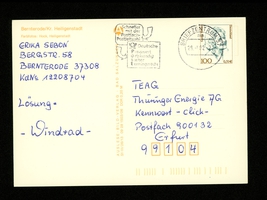 ERIKA SEBON
BERGSTR. 58
BERNTERODE 37308
KdNr. 12208704
Lösung:
- Windrad -
TEAG
Thüringer Energie AG
Kennwort - Click -
Postfach 900132
Erfurt
99104
Deutsche
100